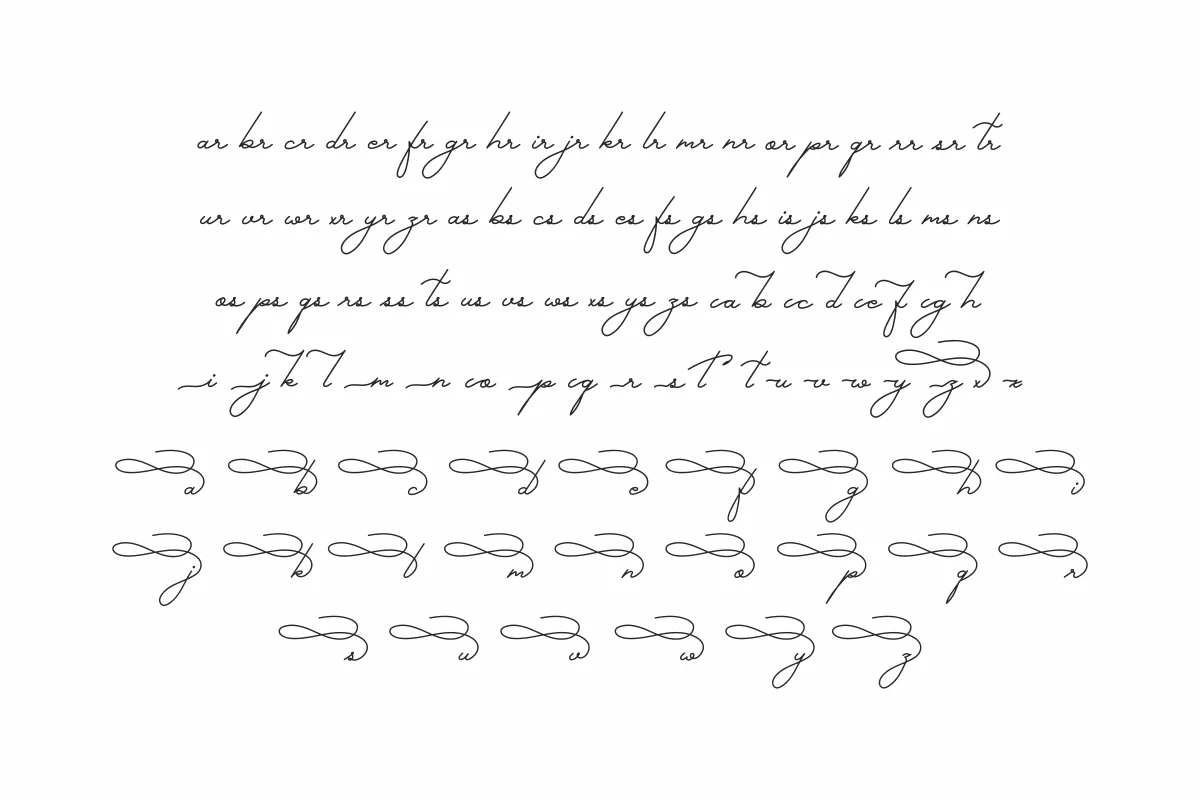 ar br cr dr er fr gr hr ir jr kr lr mr nr or pr qr rr sr tr
ur vr wr xr yr zr as bs cs ds es fs gs hs is js ks ls ms ns
os ps qs rs ss ts us vs ws xs ys zs ca b cc d ce f cg h
i j k l m n co p cq r s t t u v w y z x x
a b c d e f g h i
j k l m n o p q r
s u v w y z